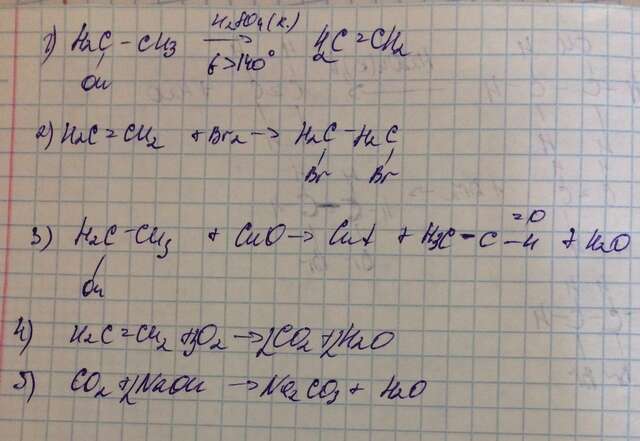 H2SO4(к.)
1) H2C - CH3 → H2C=CH2
t>140°
OH
2) H2C=CH2 + Br2 → H2C - H2C
Br Br
=O
3) H2C-CH3 + CuO → Cu↓ + H3C - C - H + H2O
OH
4) H2C=CH2 + 3O2 → 2CO2 + 2H2O
5) CO2 + 2NaOH → Na2CO3 + H2O